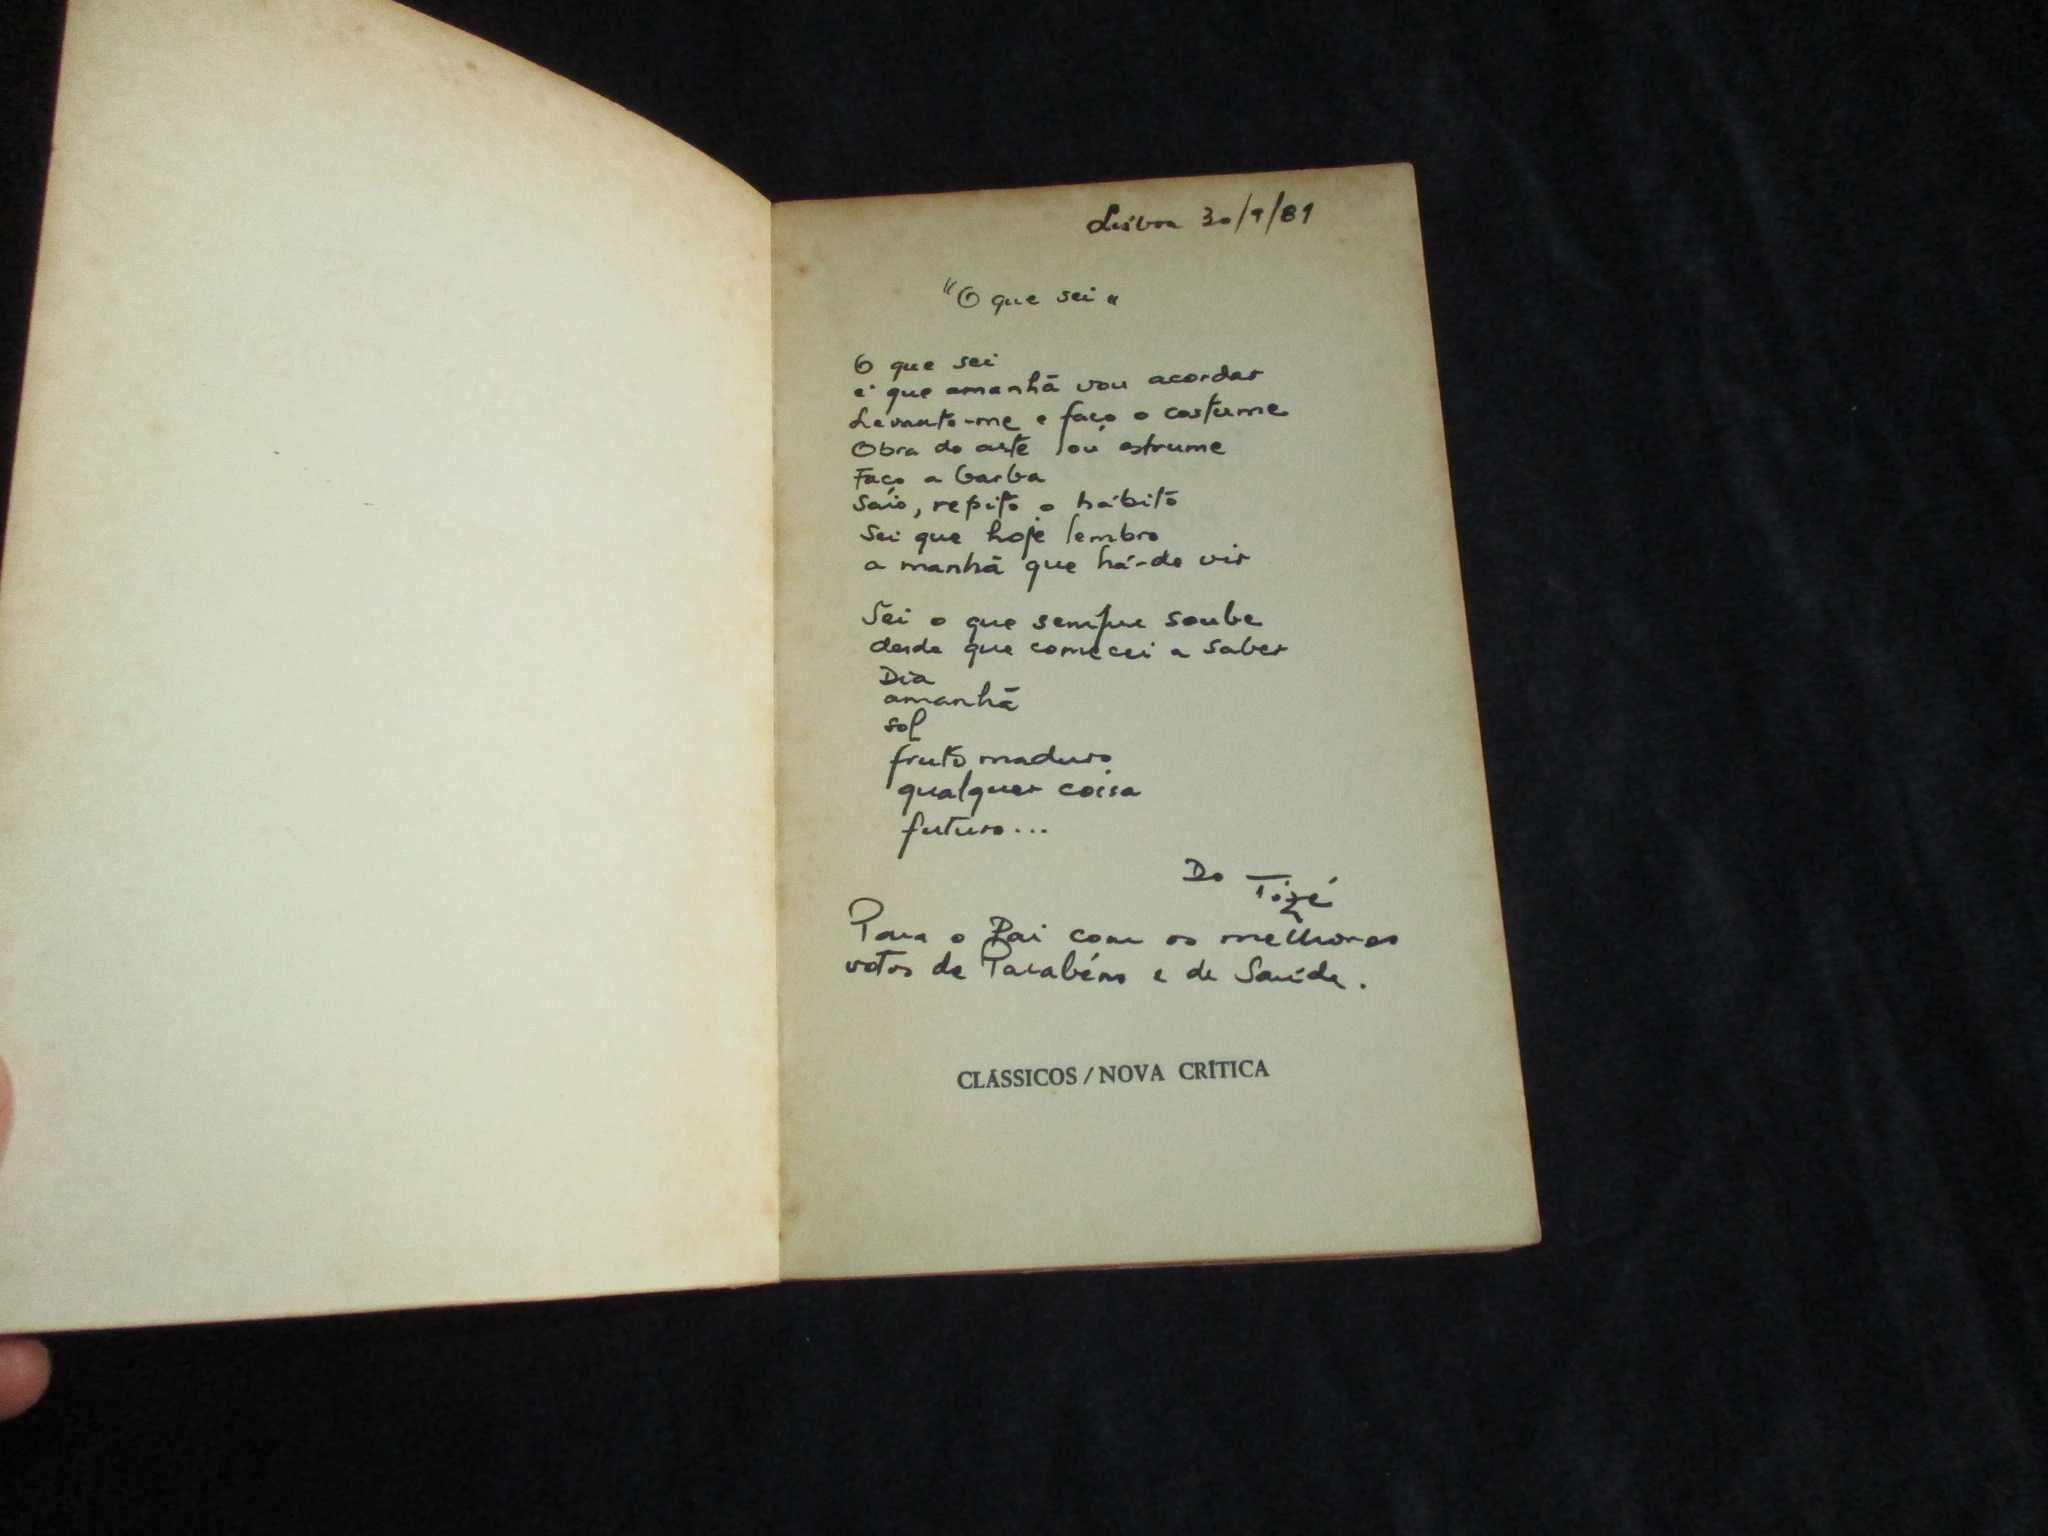 Lisboa 30/9/81
"O que sei"
O que sei
é que amanhã vou acordar
Levanto-me e faço o costume
Obra de arte ou estrume
Faço a barba
Saio, repito o hábito
Sei que hoje lembro
a manhã que há-de vir
Sei o que sempre soube
desde que comecei a saber
Dia
amanhã
sol
fruto maduro
qualquer coisa
futuro...
Do Tózé
Para o Pai com os melhores
votos de Parabéns e de Saúde.
CLÁSSICOS / NOVA CRÍTICA